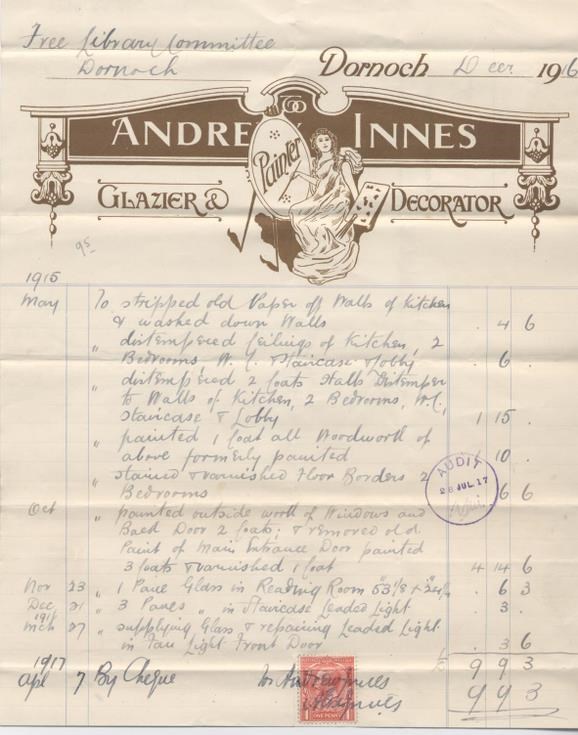 Free Library Committee
Dornoch
Dornoch Decer 1916
ANDREW INNES
Painter
GLAZIER & DECORATOR
95
1915
May To stripped old Paper off Walls of Kitchen
& washed down Walls . 4 6
" distempered Ceilings of Kitchen, 2
Bedrooms, W.C. Staircase & Lobby . 6 .
" distempered 2 Coats Halls Distemper
to Walls of Kitchen, 2 Bedrooms, W.C.,
Staircase & Lobby 1 15 .
" painted 1 Coat all Woodwork of
above formerly painted 1 10 .
" stained & varnished Floor Borders 2
Bedrooms 6 6
AUDIT
28 JUL. 17
Oct " painted outside work of Windows and
Back Door 2 Coats, & removed old
Paint of Main Entrance Door painted
3 Coats & varnished 1 Coat 4 14 6
Nov 23 " 1 Pane Glass in Reading Room . 6 3
Dec 21 " 3 Panes " in Staircase Leaded Light . 3 .
1916
Mch 27 " supplying Glass & repairing Leaded Light
in Fan Light Front Door . 3 6
£ 9 9 3
1917
Apl 7 By Cheque for Andrew Innes
9 9 3
ONE PENNY